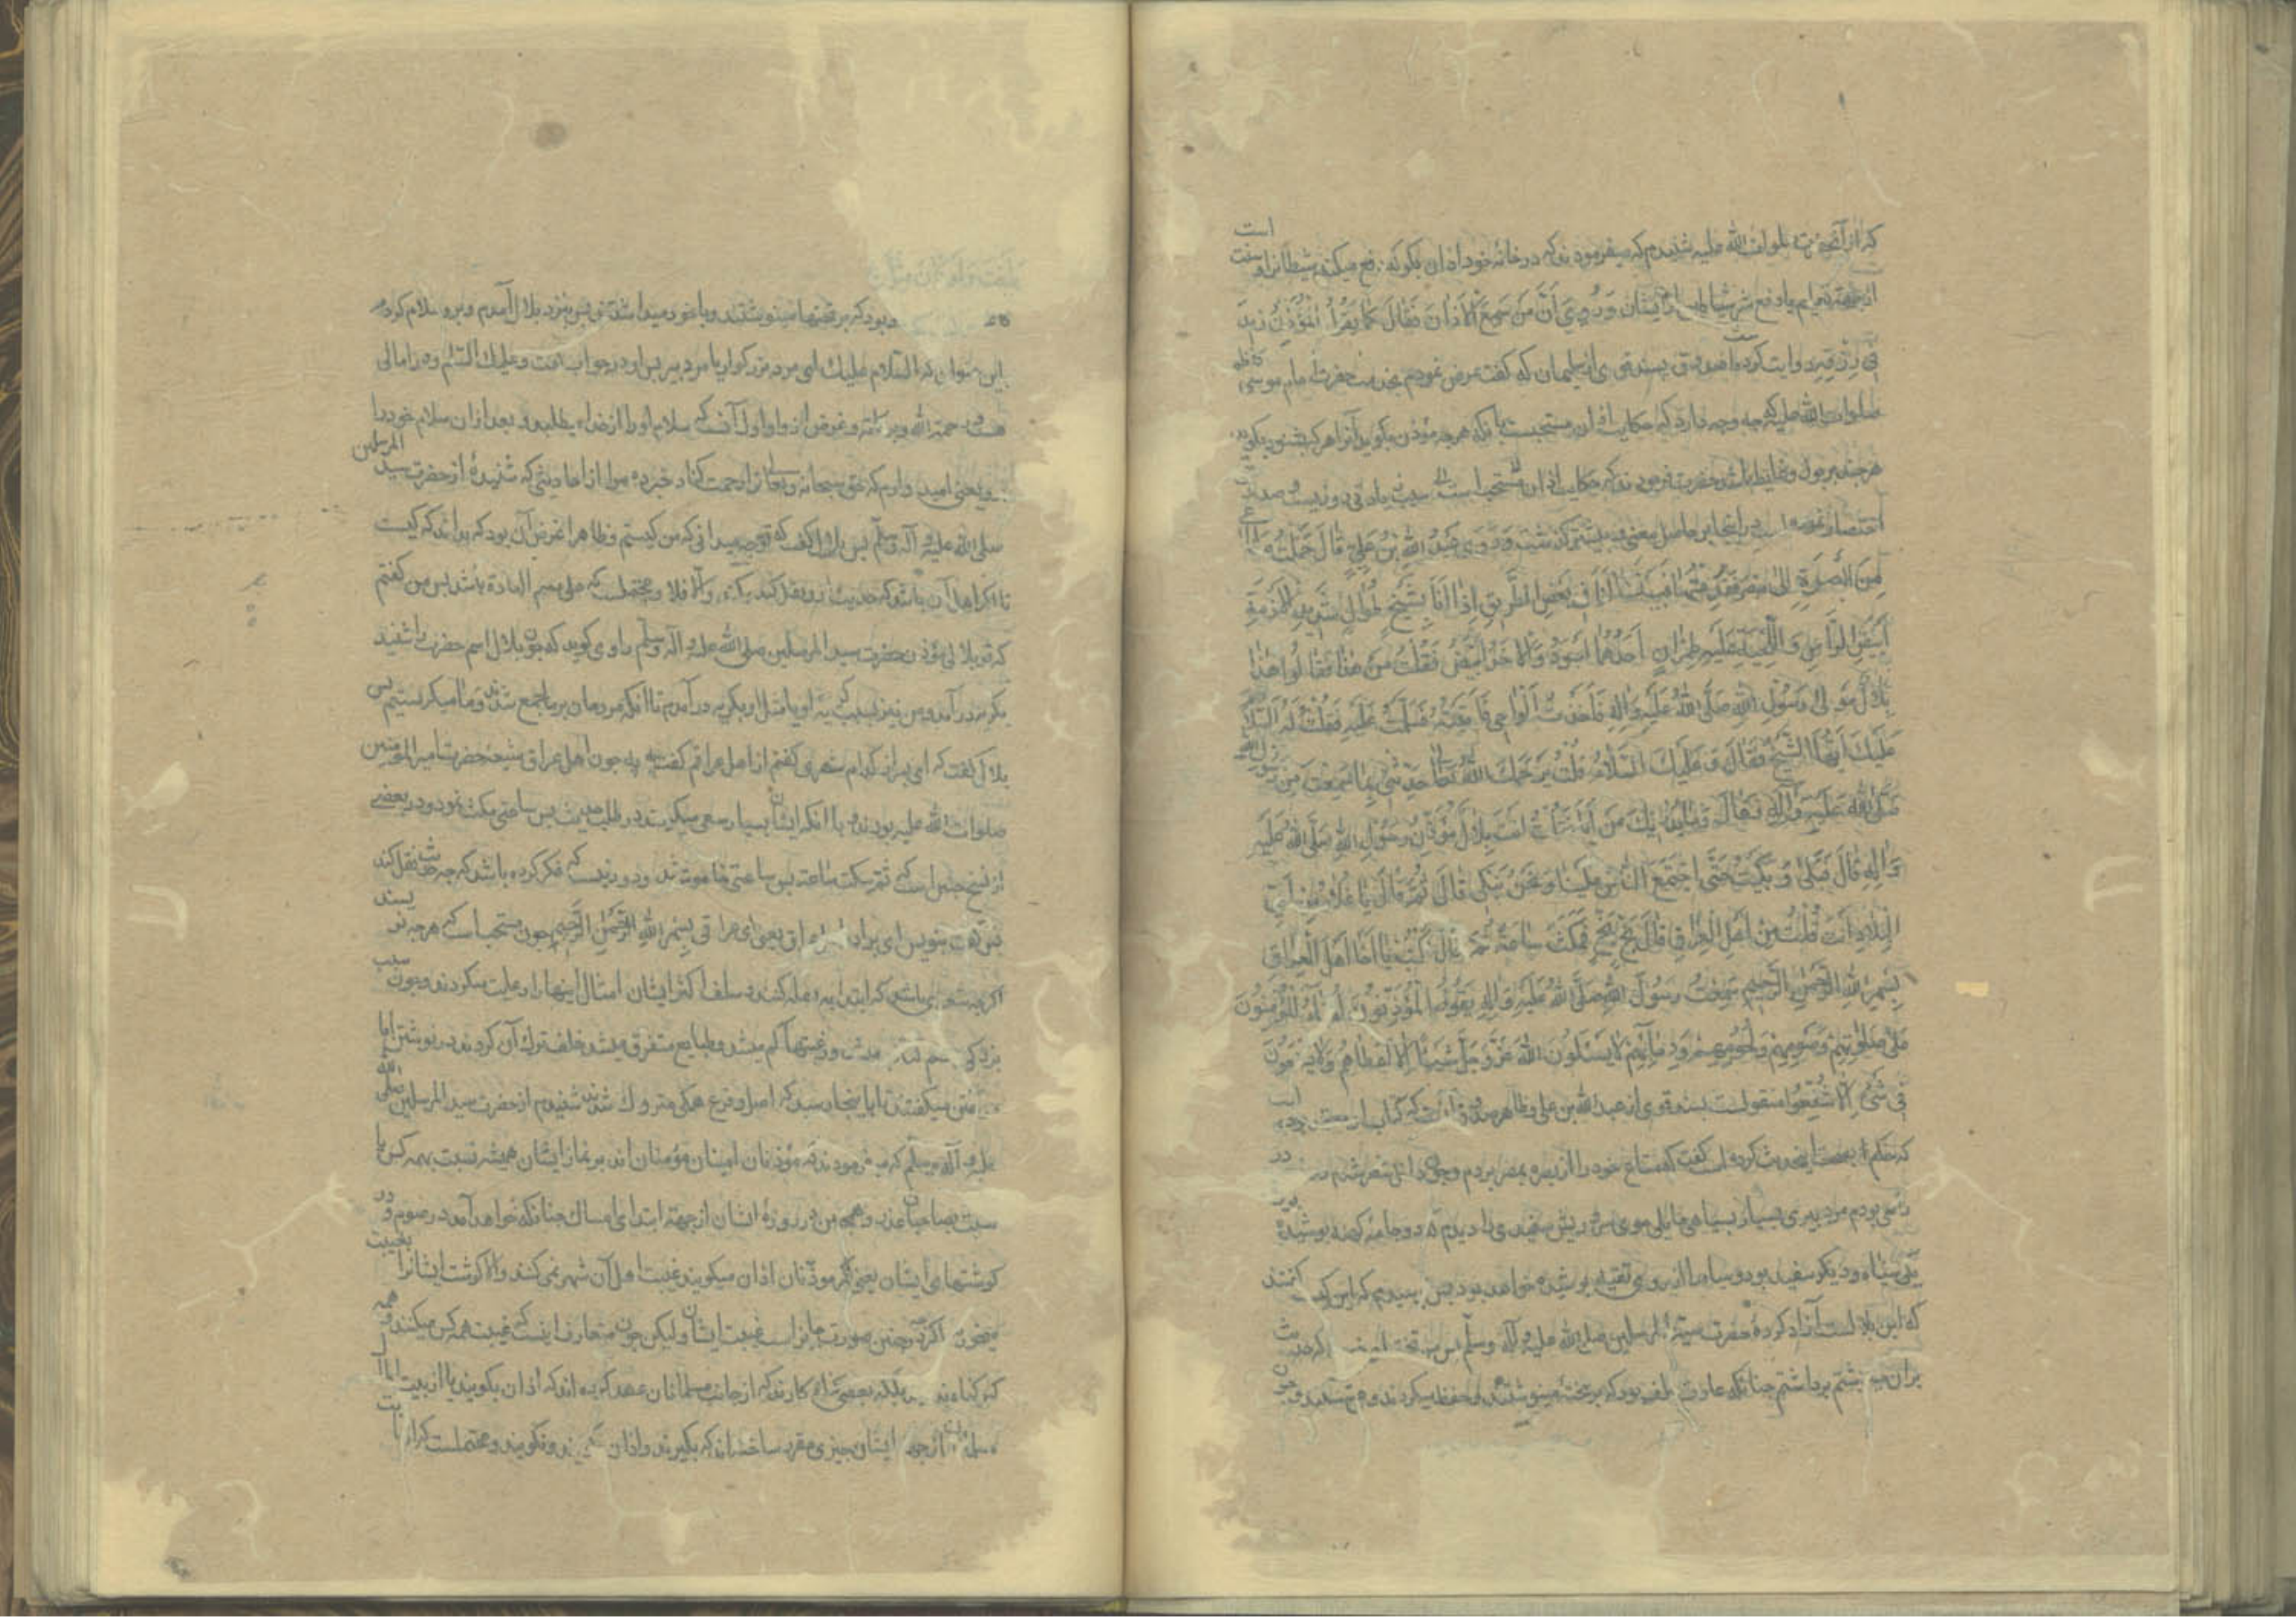 که از آنحضرت صلوات الله علیه شنیدم که میفرمودند که در خانه خود اذان بگو که دفع میکند شیطانرا و سنت است
از جهة دفع شر شیاطین ایشان وَرُوِیَ أَنَّ مَنْ سَمِعَ الْأَذَانَ فَقَالَ كَمَا يَقُولُ الْمُؤَذِّنُ زِيدَ
فِي رِزْقِهِ روایت کرده است صدوق بسند قوی از سلیمان که گفت عرض نمودم بخدمت حضرت امام موسی کاظم
صلوات الله علیه که چه وجه دارد که حکایت اذان مستحبست با آنکه هر چه مؤذن بگوید آنرا هر که بشنود بگوید
هر چند بر بول و غایط باشد حضرت فرمودند که حکایت اذان مستحب است که سبب زیادتی روزیست و صدوق
اختصار نموده است در اینجا بر حاصل معنی و پیشتر گذشت وَرُوِيَ عَبْدُ اللهِ بْنُ عَلِيٍّ قَالَ حَمَلْتُ مَتَاعاً
مِنَ الْبَصْرَةِ إِلَى مِصْرَ فَقَدِمْتُهَا فَبَيْنَمَا أَنَا فِي بَعْضِ الطَّرِيقِ إِذَا أَنَا بِشَيْخٍ طُوَالٍ شَدِيدِ الْأُدْمَةِ
أَبْيَضِ الرَّأْسِ وَاللِّحْيَةِ عَلَيْهِ طِمْرَانِ أَحَدُهُمَا أَسْوَدُ وَالْآخَرُ أَبْيَضُ فَقُلْتُ مَنْ هَذَا فَقَالُوا هَذَا
بِلَالٌ مَوْلَى رَسُولِ اللهِ صَلَّى اللهُ عَلَيْهِ وَآلِهِ فَأَخَذْتُ أَلْوَاحِي فَأَتَيْتُهُ فَسَلَّمْتُ عَلَيْهِ فَقُلْتُ لَهُ السَّلَامُ
عَلَيْكَ أَيُّهَا الشَّيْخُ فَقَالَ وَعَلَيْكَ السَّلَامُ قُلْتُ يَرْحَمُكَ اللهُ تَعَالَى حَدِّثْنِي بِمَا سَمِعْتَ مِنْ رَسُولِ اللهِ
صَلَّى اللهُ عَلَيْهِ وَآلِهِ فَقَالَ وَمَا يُدْرِيكَ مَنْ أَنَا فَقُلْتُ أَنْتَ بِلَالٌ مُؤَذِّنُ رَسُولِ اللهِ صَلَّى اللهُ عَلَيْهِ
وَآلِهِ قَالَ فَبَكَى وَبَكَيْتُ حَتَّى اجْتَمَعَ النَّاسُ عَلَيْنَا وَنَحْنُ نَبْكِي قَالَ ثُمَّ قَالَ يَا غُلَامُ مِنْ أَيِّ
الْبِلَادِ أَنْتَ قُلْتُ مِنْ أَهْلِ الْعِرَاقِ قَالَ بَخْ بَخْ فَمَكَثَ سَاعَةً ثُمَّ قَالَ اكْتُبْ يَا أَخَا أَهْلِ الْعِرَاقِ
بِسْمِ اللهِ الرَّحْمَنِ الرَّحِيمِ سَمِعْتُ رَسُولَ اللهِ صَلَّى اللهُ عَلَيْهِ وَآلِهِ يَقُولُ الْمُؤَذِّنُونَ أُمَنَاءُ الْمُؤْمِنِينَ
عَلَى صَلَوَاتِهِمْ وَصَوْمِهِمْ وَلُحُومِهِمْ وَدِمَائِهِمْ لَا يَسْئَلُونَ اللهَ عَزَّ وَجَلَّ شَيْئًا إِلَّا أَعْطَاهُمْ وَلَا يَشْفَعُونَ
فِي شَيْءٍ إِلَّا شُفِّعُوا منقولست بسند قوی از عبد الله بن علی و ظاهر صدوق آنست که کتاب او معتمد بوده است
که حکم بصحت این حدیث کرده است گفت که متاع خود را از بصره بمصر بردم و چون داخل مصر شدم در
راهی بودم مرد پیری بسیار بسیاهی مایلی موی سر و ریش سفیدی را دیدم که دو جامه کهنه پوشیده بود
یکی سیاه و دیگر سفید بود و سیاه را از روی تقیه پوشیده خواهد بود پس پرسیدم که این کیست گفتند
که این بلالست آزاد کرده حضرت سید المرسلین صلی الله علیه و آله وسلم پس تخته
بران می نوشتم برداشتم چنانکه عادت سلف بود که بر تخته مینوشتند و حفظ میکردند و میشستند و چون
بود که بر تختها مینوشتند و با خود میداشتند پس بنزد بلال آمدم و برو سلام کردم
باین عنوان که السلام علیک ای مرد بزرگوار یا مرد پیر پس او در جواب گفت وعلیک السلم و در امالی
هست و رحمة الله وبرکاته و غرض از واو اول آنست که سلام او را از خدا بطلبد و بعد از آن سلام خود را
یعنی امید دارم که حق سبحانه وتعالی ترا رحمت کناد خبر ده مرا از احادیثی که شنیدهٔ از حضرت سید المرسلین
صلی الله علیه و آله وسلم پس بلال گفت که تو چه میدانی که من کیستم و ظاهرا غرض آن بود که بداند که کیست
تا اگر اهل آن باشد که حدیث ازو نقل کند بکند والا فلا و محتملست که علی رسم العادة باشد پس من گفتم
که تو بلالی مؤذن حضرت سید المرسلین صلی الله علیه و آله وسلم راوی گوید که چون بلال اسم حضرت را شنید
بگریه در آمد و من نیز بسبب گریه او یا مثل او بگریه در آمدم تا آنکه مردمان بر ما جمع شدند و ما میگریستیم پس
بلال گفت که ای پسر از کدام شهری گفتم از اهل عراقم گفت به به چون اهل عراق شیعه حضرت امیر المؤمنین
صلوات الله علیه بودند و با آنکه ایشان بسیار سعی میکردند در طلب حدیث پس ساعتی مکث نمود و در بعضی
از نسخ چنین است که ثم سکت ساعة پس ساعتی خاموش شد و دور نیست که فکر کرده باشد که چه حدیث نقل کند
پس گفت بنویس ای برادر اهل عراق یعنی ای عراقی بِسْمِ اللهِ الرَّحْمَنِ الرَّحِيمِ چون مستحب است که هر چه نویسند
اگر چه شعر باشد که ابتدا به بسمله کنند و سلف اکثر ایشان امثال اینها را رعایت میکردند و چون سبب
ورغبتها کم میشد و طبایع متفرق میشد خلف ترک آن کردند در نوشتن اما
میگفتند تا باینجا رسید که اصل و فرع همگی متروک شد شنیدم از حضرت سید المرسلین صلی الله
علیه و آله وسلم که میفرمودند که مؤذنان امینان مؤمنان اند بر نماز ایشان همیشه نسبت بهمه کس یا
نسبت بصاحبان عذر و همچنین در روزهٔ ایشان از جهة ابتدای امساک چنانکه خواهد آمد در صوم و در
گوشتهای ایشان یعنی اگر مؤذنان اذان میگویند غیبت اهل آن شهر نمی کنند والا گوشت ایشانرا بغیبت
میخورند اگر چه در چنین صورت جایز است غیبت ایشان ولیکن چون متعارف اینست که غیبت همه کس میکنند و همه
گناه کارند که از جانب مسلمانان عهد کرده اند که اذان بگویند یا از بیت
المال از جهة ایشان چیزی مقرر ساخته اند که بگیرند و اذان نگویند و محتملست که از